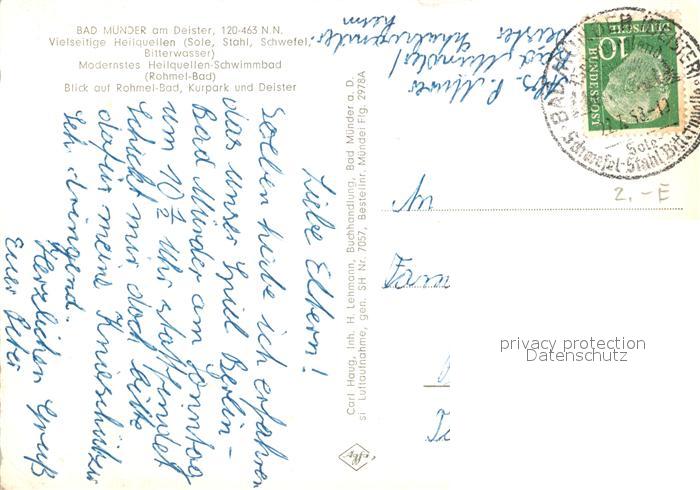 BAD MÜNDER am Deister, 120-463 N.N.
Vielseitige Heilquellen (Sole, Stahl, Schwefel,
Bitterwasser)
Modernstes Heilquellen-Schwimmbad
(Rohmel-Bad)
Blick auf Rohmel-Bad, Kurpark und Deister
Liebe Eltern!
Soeben habe ich erfahren
das unser Spiel Berlin -
Bad Münder am Sonntag
um 10 ½ Uhr stattfindet
Schickt mir doch bitte
dafür meine Knieschützer
dringend.
Herzlichen Gruß
Euer Peter
Carl Haug, Inh. H. Lehmann, Buchhandlung, Bad Münder a. D.
si Luftaufnahme, gen. SH Nr. 7057, Bestellnr. Münder Flg. 2978A
Abs. P.
Bad Münder/
Deister
heim
DEUTSCHE
BUNDESPOST
10
BAD MÜNDER
Sole-
Schwefel-Stahl-Bitter
2.-E
An
Fam
privacy protection
Datenschutz